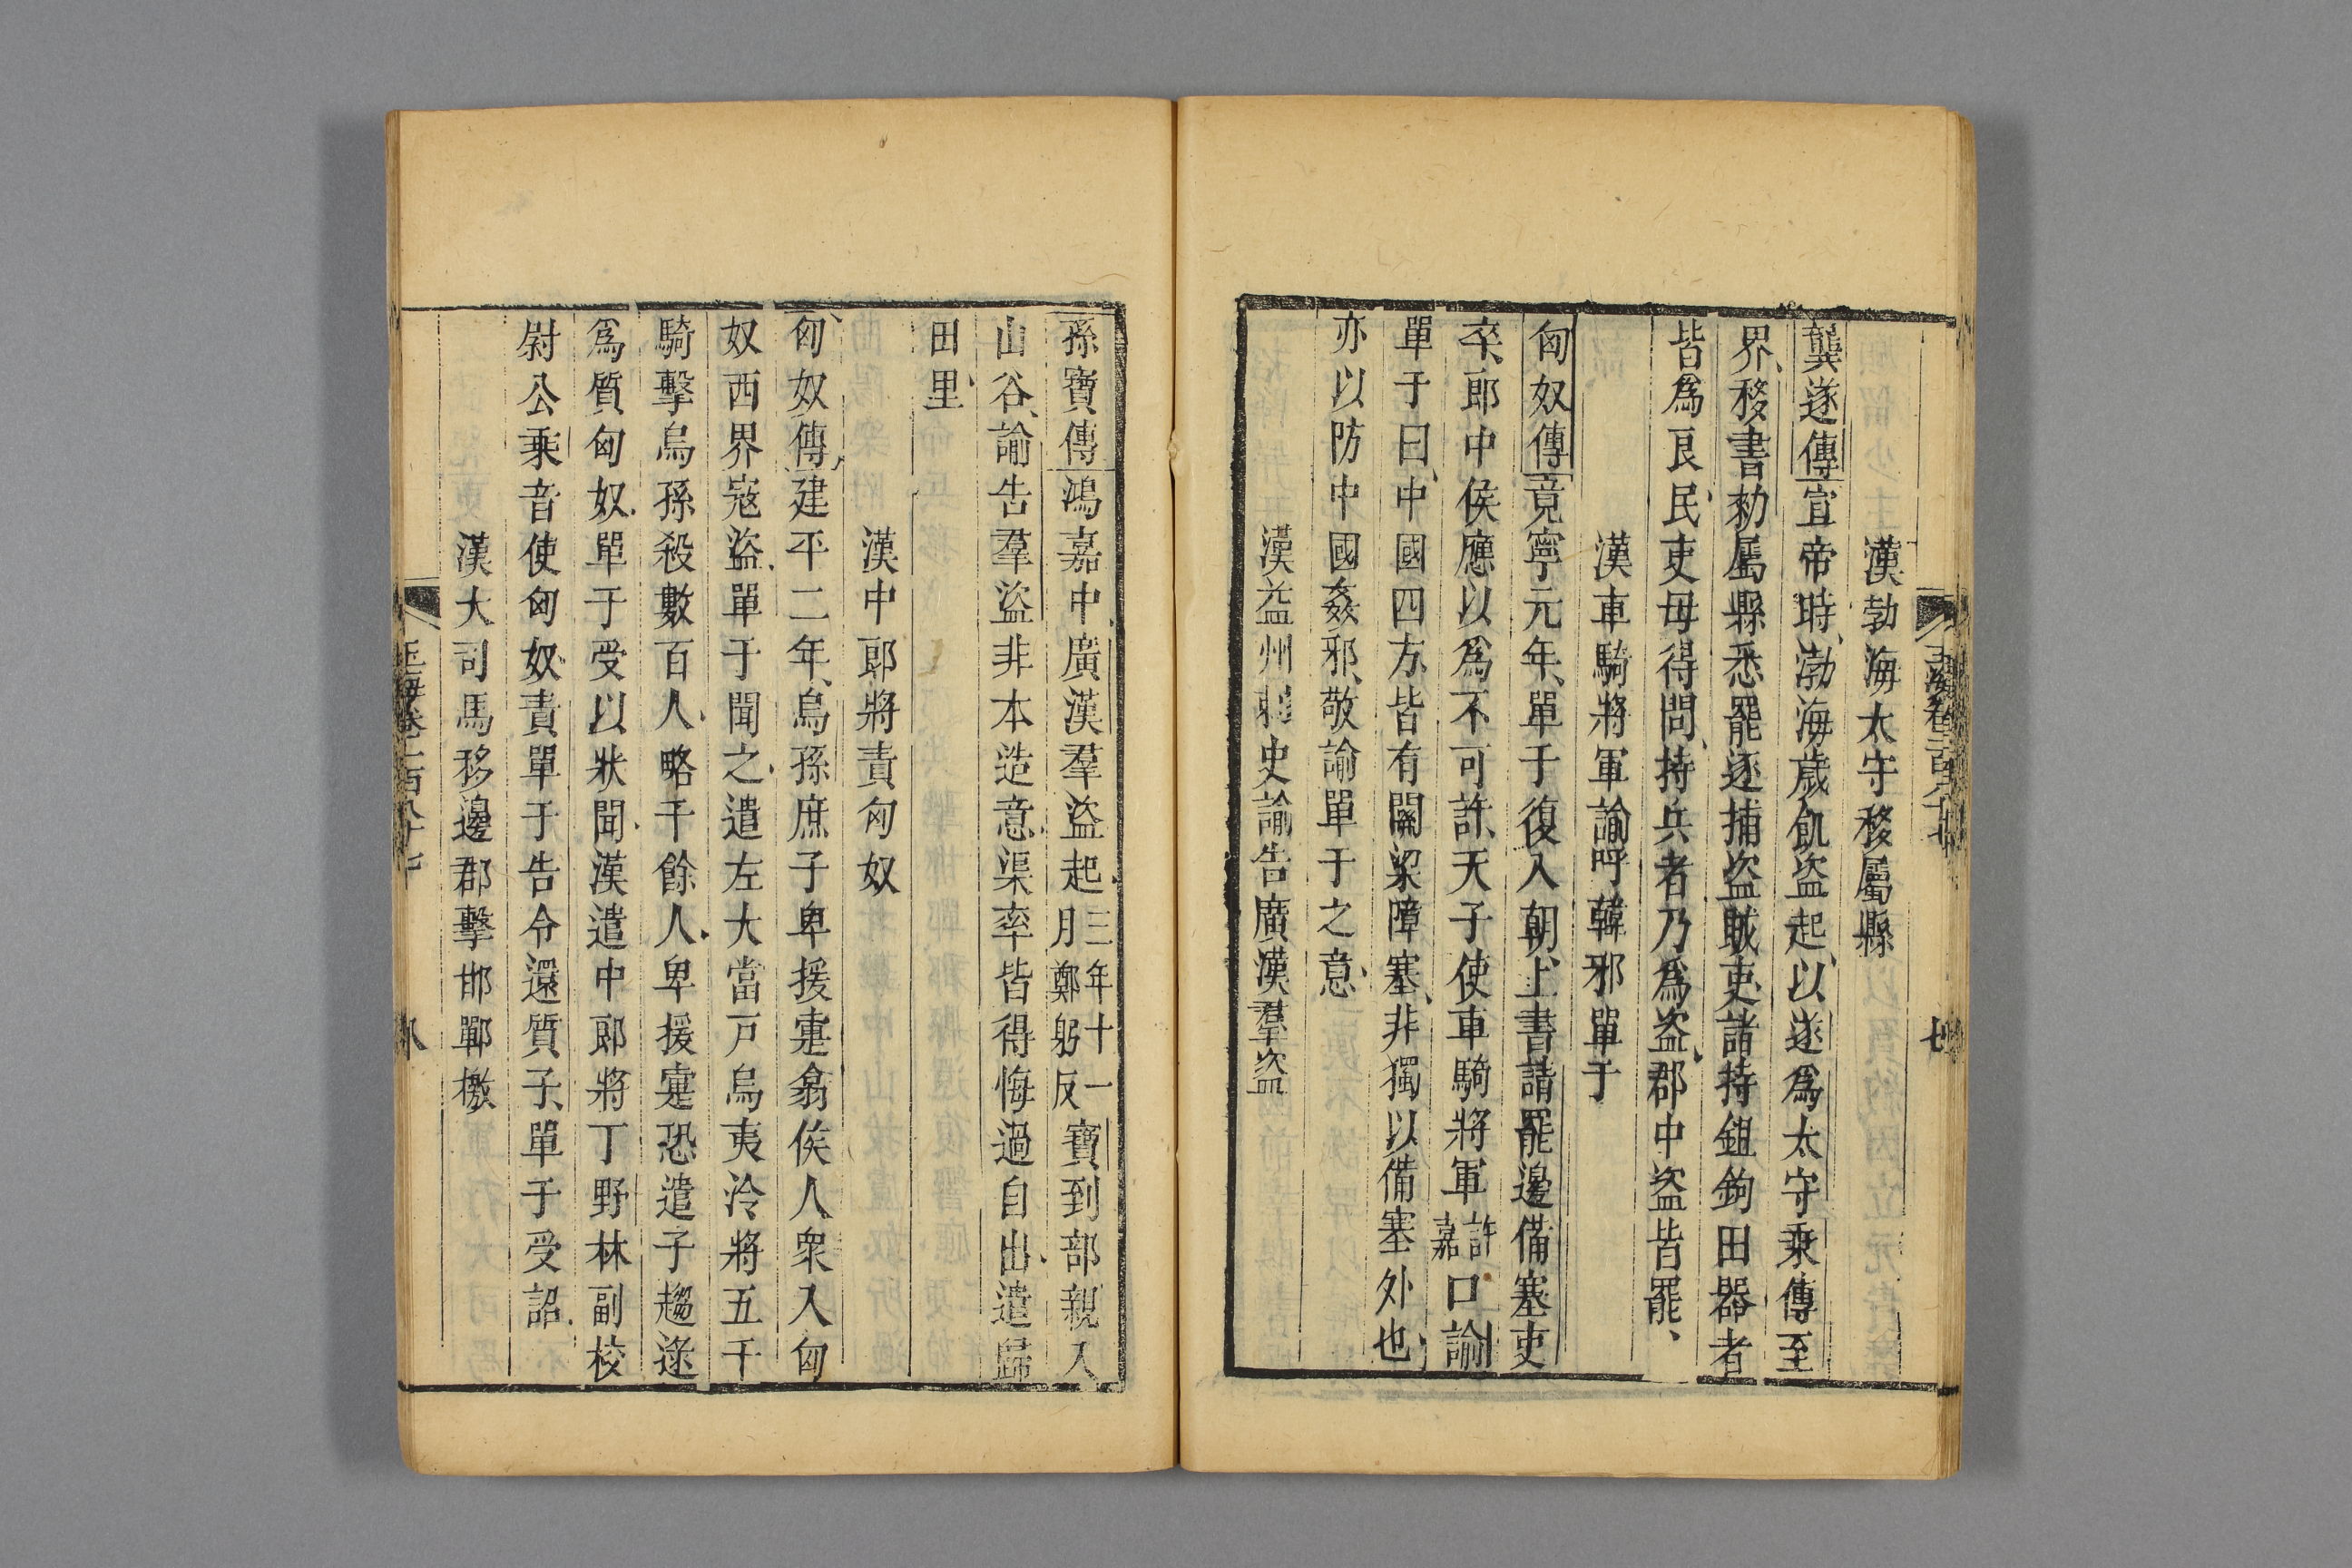 漢勃海太守移屬縣
龔遂傳宣帝時渤海歲飢盜起以遂爲太守乘傳至
界移書勑屬縣悉罷逐捕盜賊吏諸持鉏鉤田器者
皆爲良民吏毋得問持兵者乃爲盜郡中盜皆罷
漢車騎將軍諭呼韓邪單于
匈奴傳竟寧元年單于復入朝上書請罷邊備塞吏
卒郎中侯應以爲不可許天子使車騎將軍許嘉口諭
單于曰中國四方皆有關梁障塞非獨以備塞外也
亦以防中國姦邪敬諭單于之意
漢益州刺史諭告廣漢羣盜
孫寶傳鴻嘉中廣漢羣盜起三年十一月鄭躬反寶到部親入
山谷諭告羣盜非本造意渠率皆得悔過自出遣歸
田里
漢中郎將責匈奴
匈奴傳建平二年烏孫庶子卑援疐翕侯人衆入匈
奴西界寇盜單于聞之遣左大當戸烏夷泠將五千
騎擊烏孫殺數百人略千餘人卑援疐恐遣子趨逯
爲質匈奴單于受以狀聞漢遣中郎將丁野林副校
尉公乘音使匈奴責單于告令還質子單于受詔
漢大司馬移邊郡擊邯鄲檄
玉海卷一百八十七